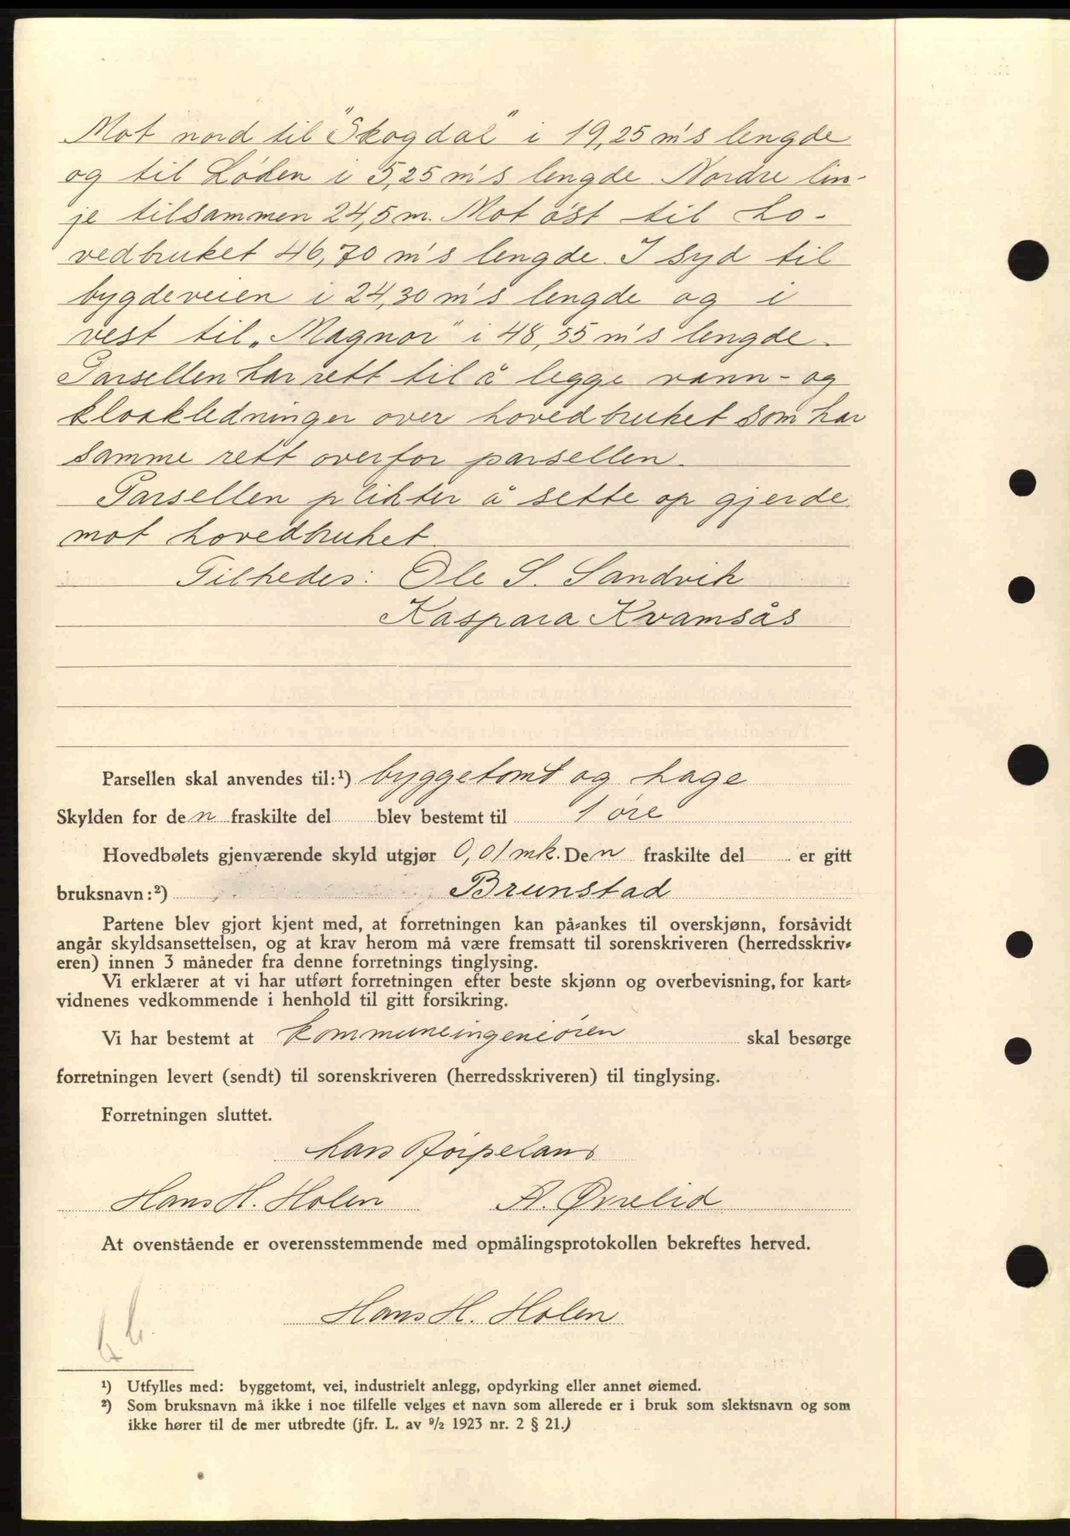 Mot nord til "Skogdal" i 19,25 m's lengde
og til Løken i 5,25 m's lengde. Nordre lin-
je tilsammen 24,5 m. Mot øst til ho-
vedbruket 46,70 m's lengde. I syd til
bygdeveien i 24,30 m's lengde og i
vest til „Magnor" i 48,55 m's lengde.
Parsellen har rett til å legge vann- og
kloakledninger over hovedbruket som har
samme rett overfor parsellen.
Parsellen plikter å sette op gjerde
mot hovedbruket.
Tilstedes: Ole S. Sandvik
Kaspara Kvamsås
Parsellen skal anvendes til:¹) byggetomt og hage
Skylden for den fraskilte del blev bestemt til 1 øre
Hovedbølets gjenværende skyld utgjør 0,01 mk. Den fraskilte del er gitt
bruksnavn:²) Brunstad
Partene blev gjort kjent med, at forretningen kan på-ankes til overskjønn, forsåvidt
angår skyldsansettelsen, og at krav herom må være fremsatt til sorenskriveren (herredsskriv-
eren) innen 3 måneder fra denne forretnings tinglysing.
Vi erklærer at vi har utført forretningen efter beste skjønn og overbevisning, for kart-
vidnenes vedkommende i henhold til gitt forsikring.
Vi har bestemt at kommuneingeniøren skal besørge
forretningen levert (sendt) til sorenskriveren (herredsskriveren) til tinglysing.
Forretningen sluttet.
Lars Pøipeland
Hans H. Holen A. Øvrelid
At ovenstående er overensstemmende med opmålingsprotokollen bekreftes herved.
Hans H. Holen
¹) Utfylles med: byggetomt, vei, industrielt anlegg, opdyrking eller annet øiemed.
²) Som bruksnavn må ikke i noe tilfelle velges et navn som allerede er i bruk som slektsnavn og som
ikke hører til de mer utbredte (jfr. L. av ⁹/₂ 1923 nr. 2 § 21.)